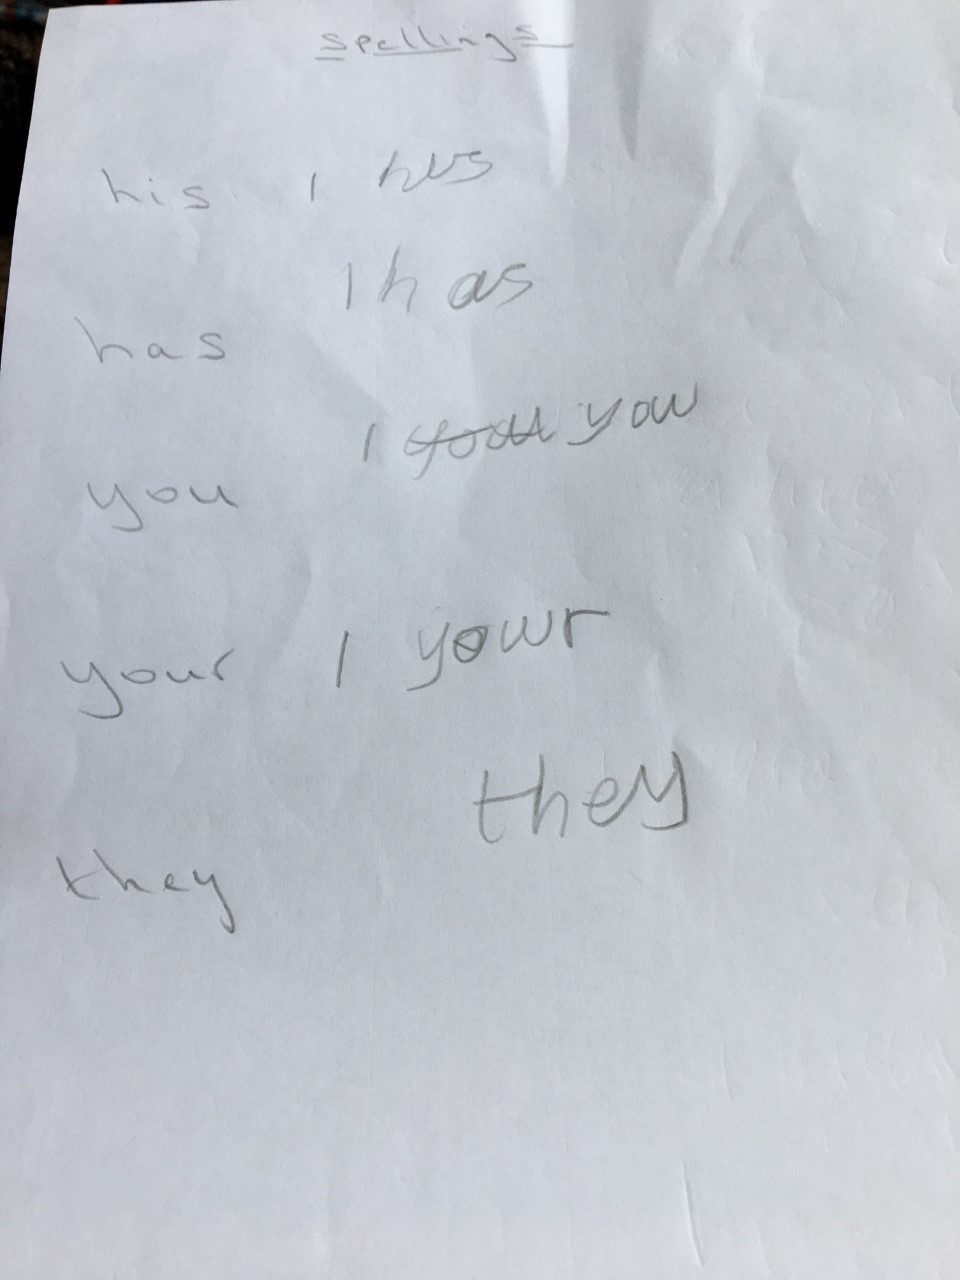 Spellings
his 1 his
1 has
has
1 you you
you
your 1 your
they
they